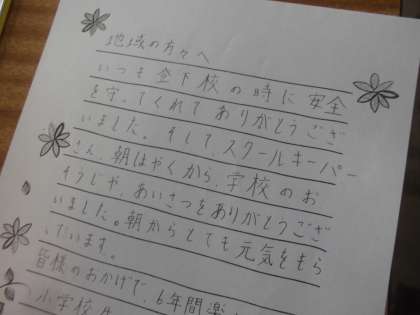 地域の方々へ
いつも登下校の時に安全
を守ってくれてありがとうござ
いました。そして、スクールキーパー
さん、朝はやくから、学校のお
そうじや、あいさつをありがとうござ
いました。朝からとても元気をもら
っています。
皆様のおかげで、6年間楽
小学校生